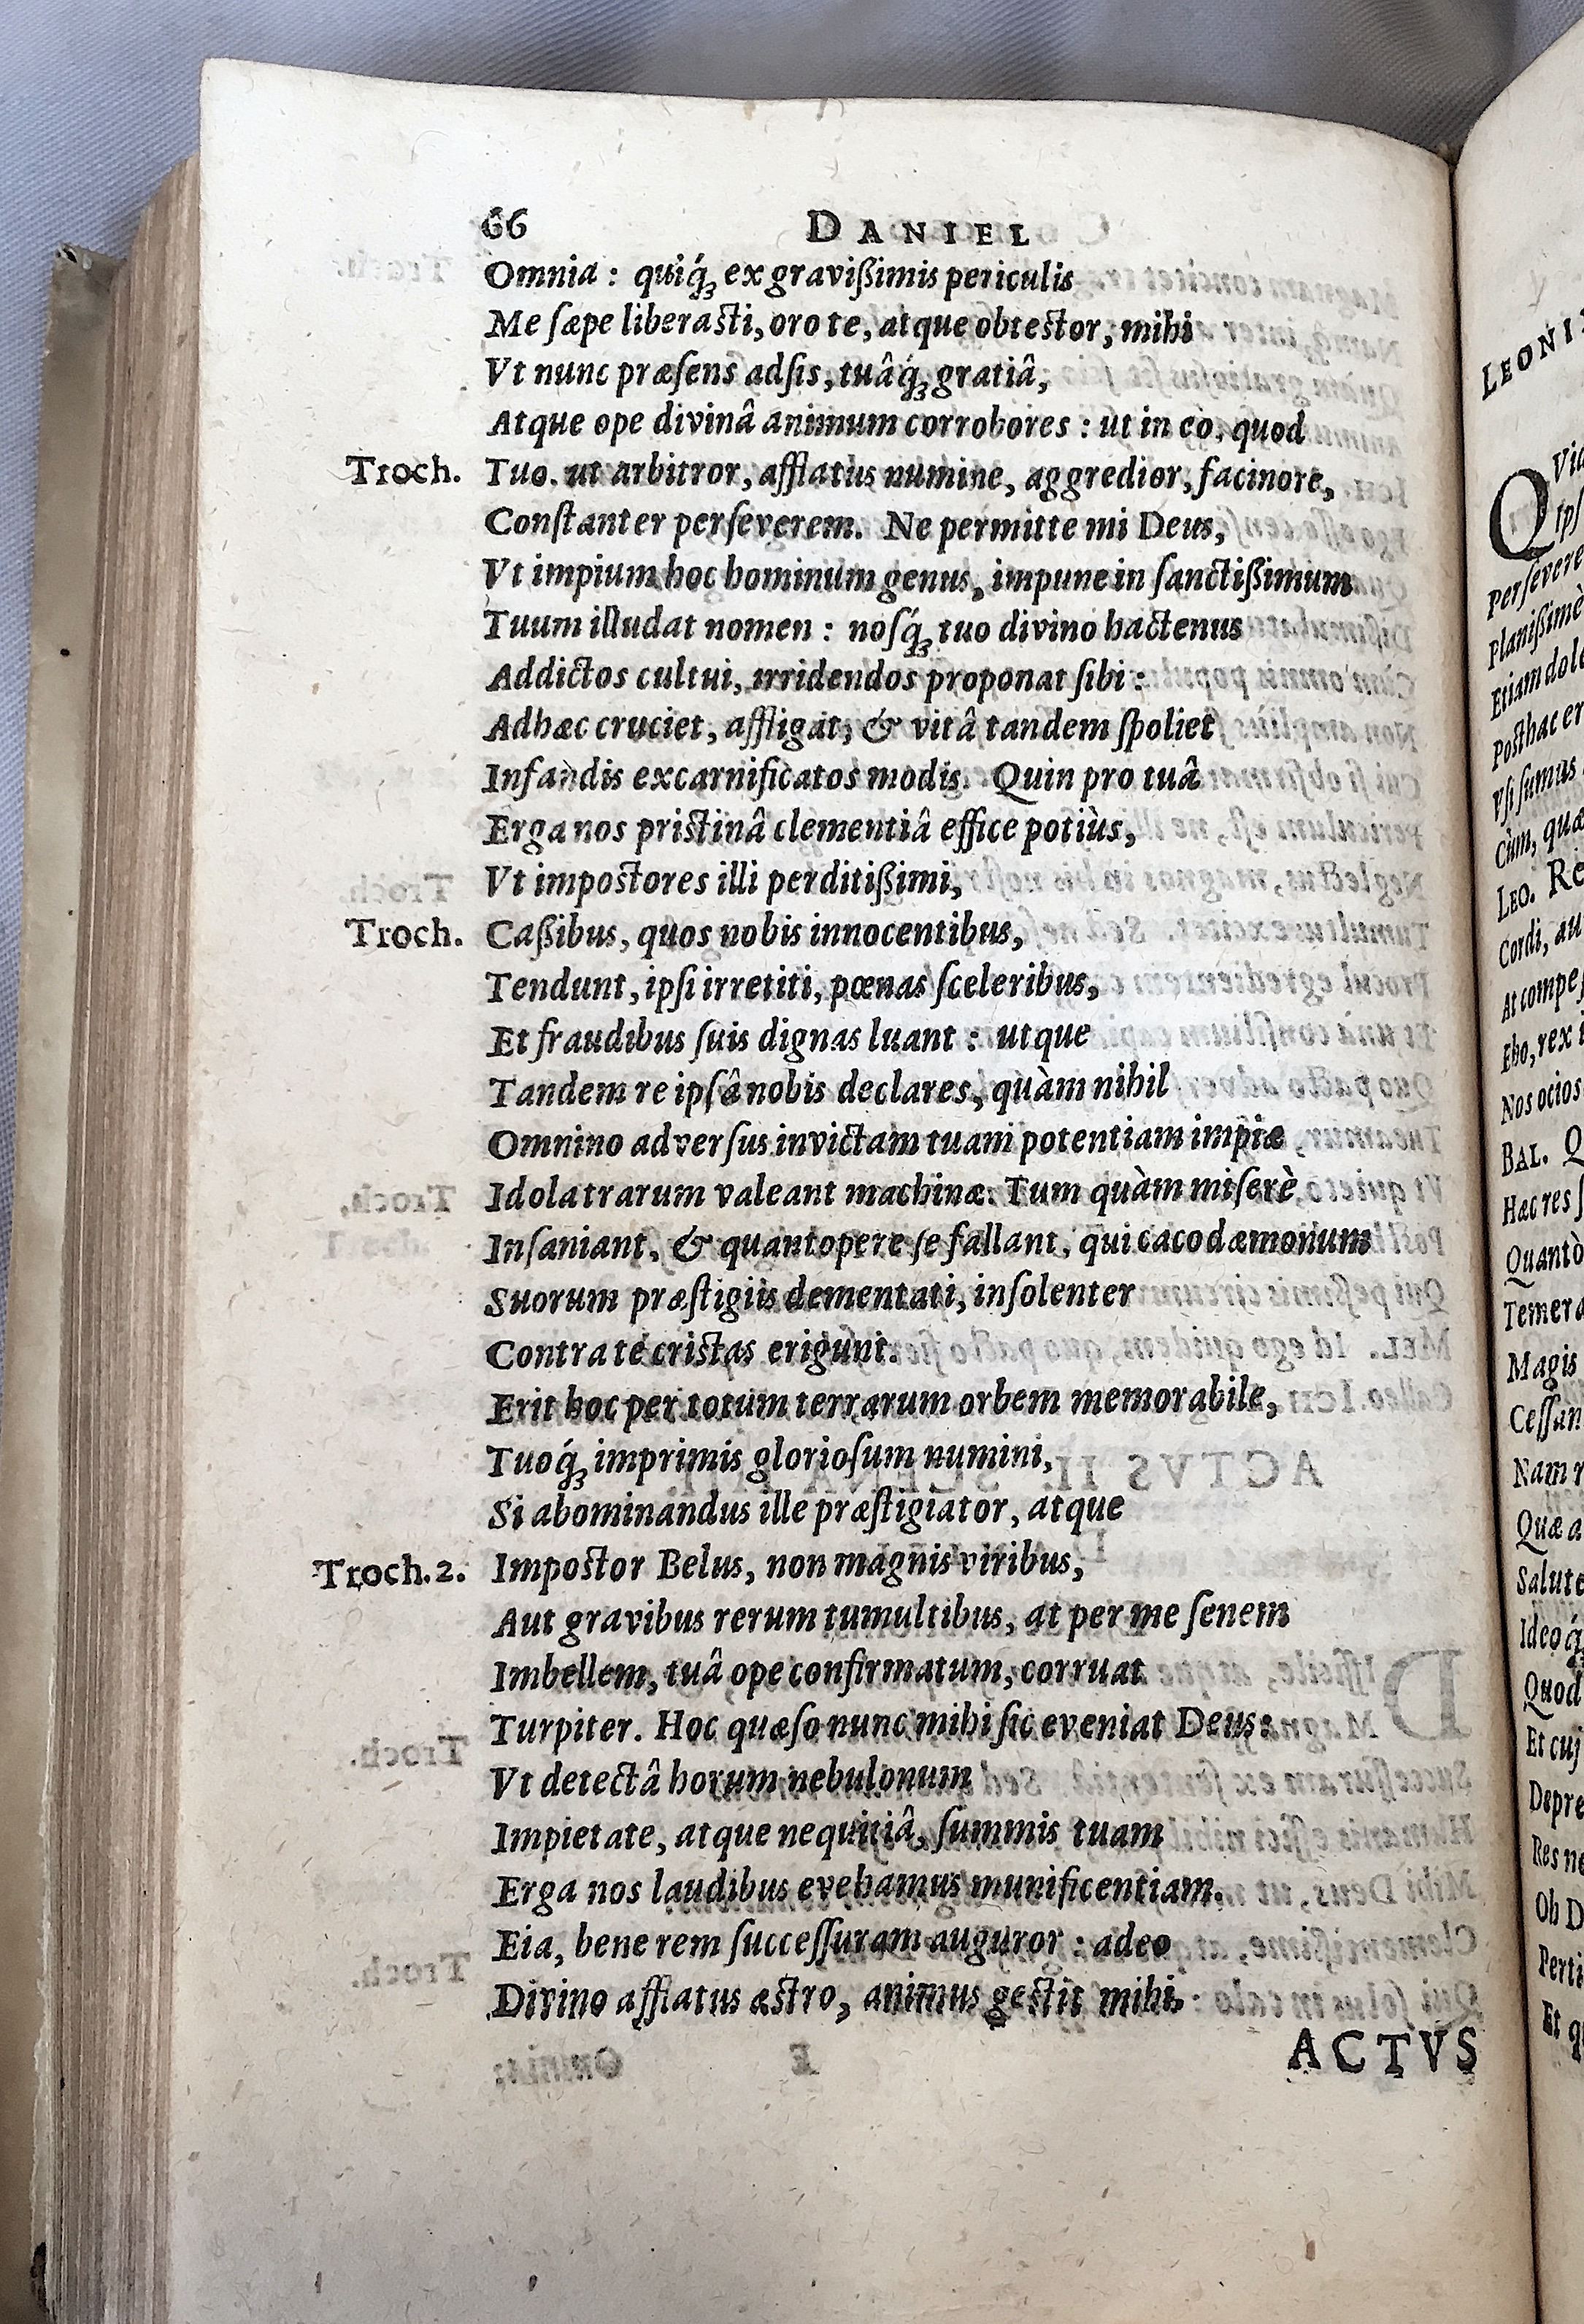 66 DANIEL
Omnia : quiq́ꝫ ex gravißimis periculis
Me ſæpe liberaſti, oro te, atque obteſtor, mihi
Vt nunc præſens adſis, tuâq́ꝫ gratiâ,
Atque ope divinâ animum corrobores : ut in eo, quod
Troch. Tuo, ut arbitror, afflatus numine, aggredior, facinore,
Conſtanter perſeverem. Ne permitte mi Deus,
Vt impium hoc hominum genus, impune in ſanctißimum
Tuum illudat nomen : noſq́ꝫ tuo divino hactenus
Addictos cultui, irridendos proponat ſibi :
Adhæc cruciet, affligat, & vitâ tandem ſpoliet
Infandis excarnificatos modis. Quin pro tuâ
Erga nos priſtinâ clementiâ effice potiùs,
Vt impoſtores illi perditißimi,
Troch. Caßibus, quos nobis innocentibus,
Tendunt, ipſi irretiti, pœnas ſceleribus,
Et fraudibus ſuis dignas luant : utque
Tandem re ipſâ nobis declares, quàm nihil
Omnino adverſus invictam tuam potentiam impiæ
Idolatrarum valeant machinæ. Tum quàm miſerè
Inſaniant, & quantopere ſe fallant, qui cacodæmonum
Suorum præſtigiis dementati, inſolenter
Contra te criſtas erigunt.
Erit hoc per totum terrarum orbem memorabile,
Tuoq́ꝫ imprimis glorioſum numini,
Si abominandus ille præſtigiator, atque
Troch. 2. Impoſtor Belus, non magnis viribus,
Aut gravibus rerum tumultibus, at per me ſenem
Imbellem, tuâ ope confirmatum, corruat
Turpiter. Hoc quæſo nunc mihi ſic eveniat Deus:
Vt detectâ horum nebulonum
Impietate, atque nequitiâ, ſummis tuam
Erga nos laudibus evehamus munificentiam.
Eia, bene rem ſucceſſuram auguror : adeo
Divino afflatus æſtro, animus geſtit mihi.
ACTVS
LEONI
Q Via
ipſ
Perſevere
Planißimè
Etiam dole
Poſthac er
Vſi ſumus
Cùm, quæ
LEO. Re
Cordi, au
At compeſ
Eho, rex i
Nos ocioſ
BAL. Q
Hæc res ſ
Quantò
Temera
Magis
Ceſſan
Nam r
Quæ a
Salute
Ideoq́ꝫ
Quod
Et cuj
Depre
Res ne
Ob D
Perti
Et qu